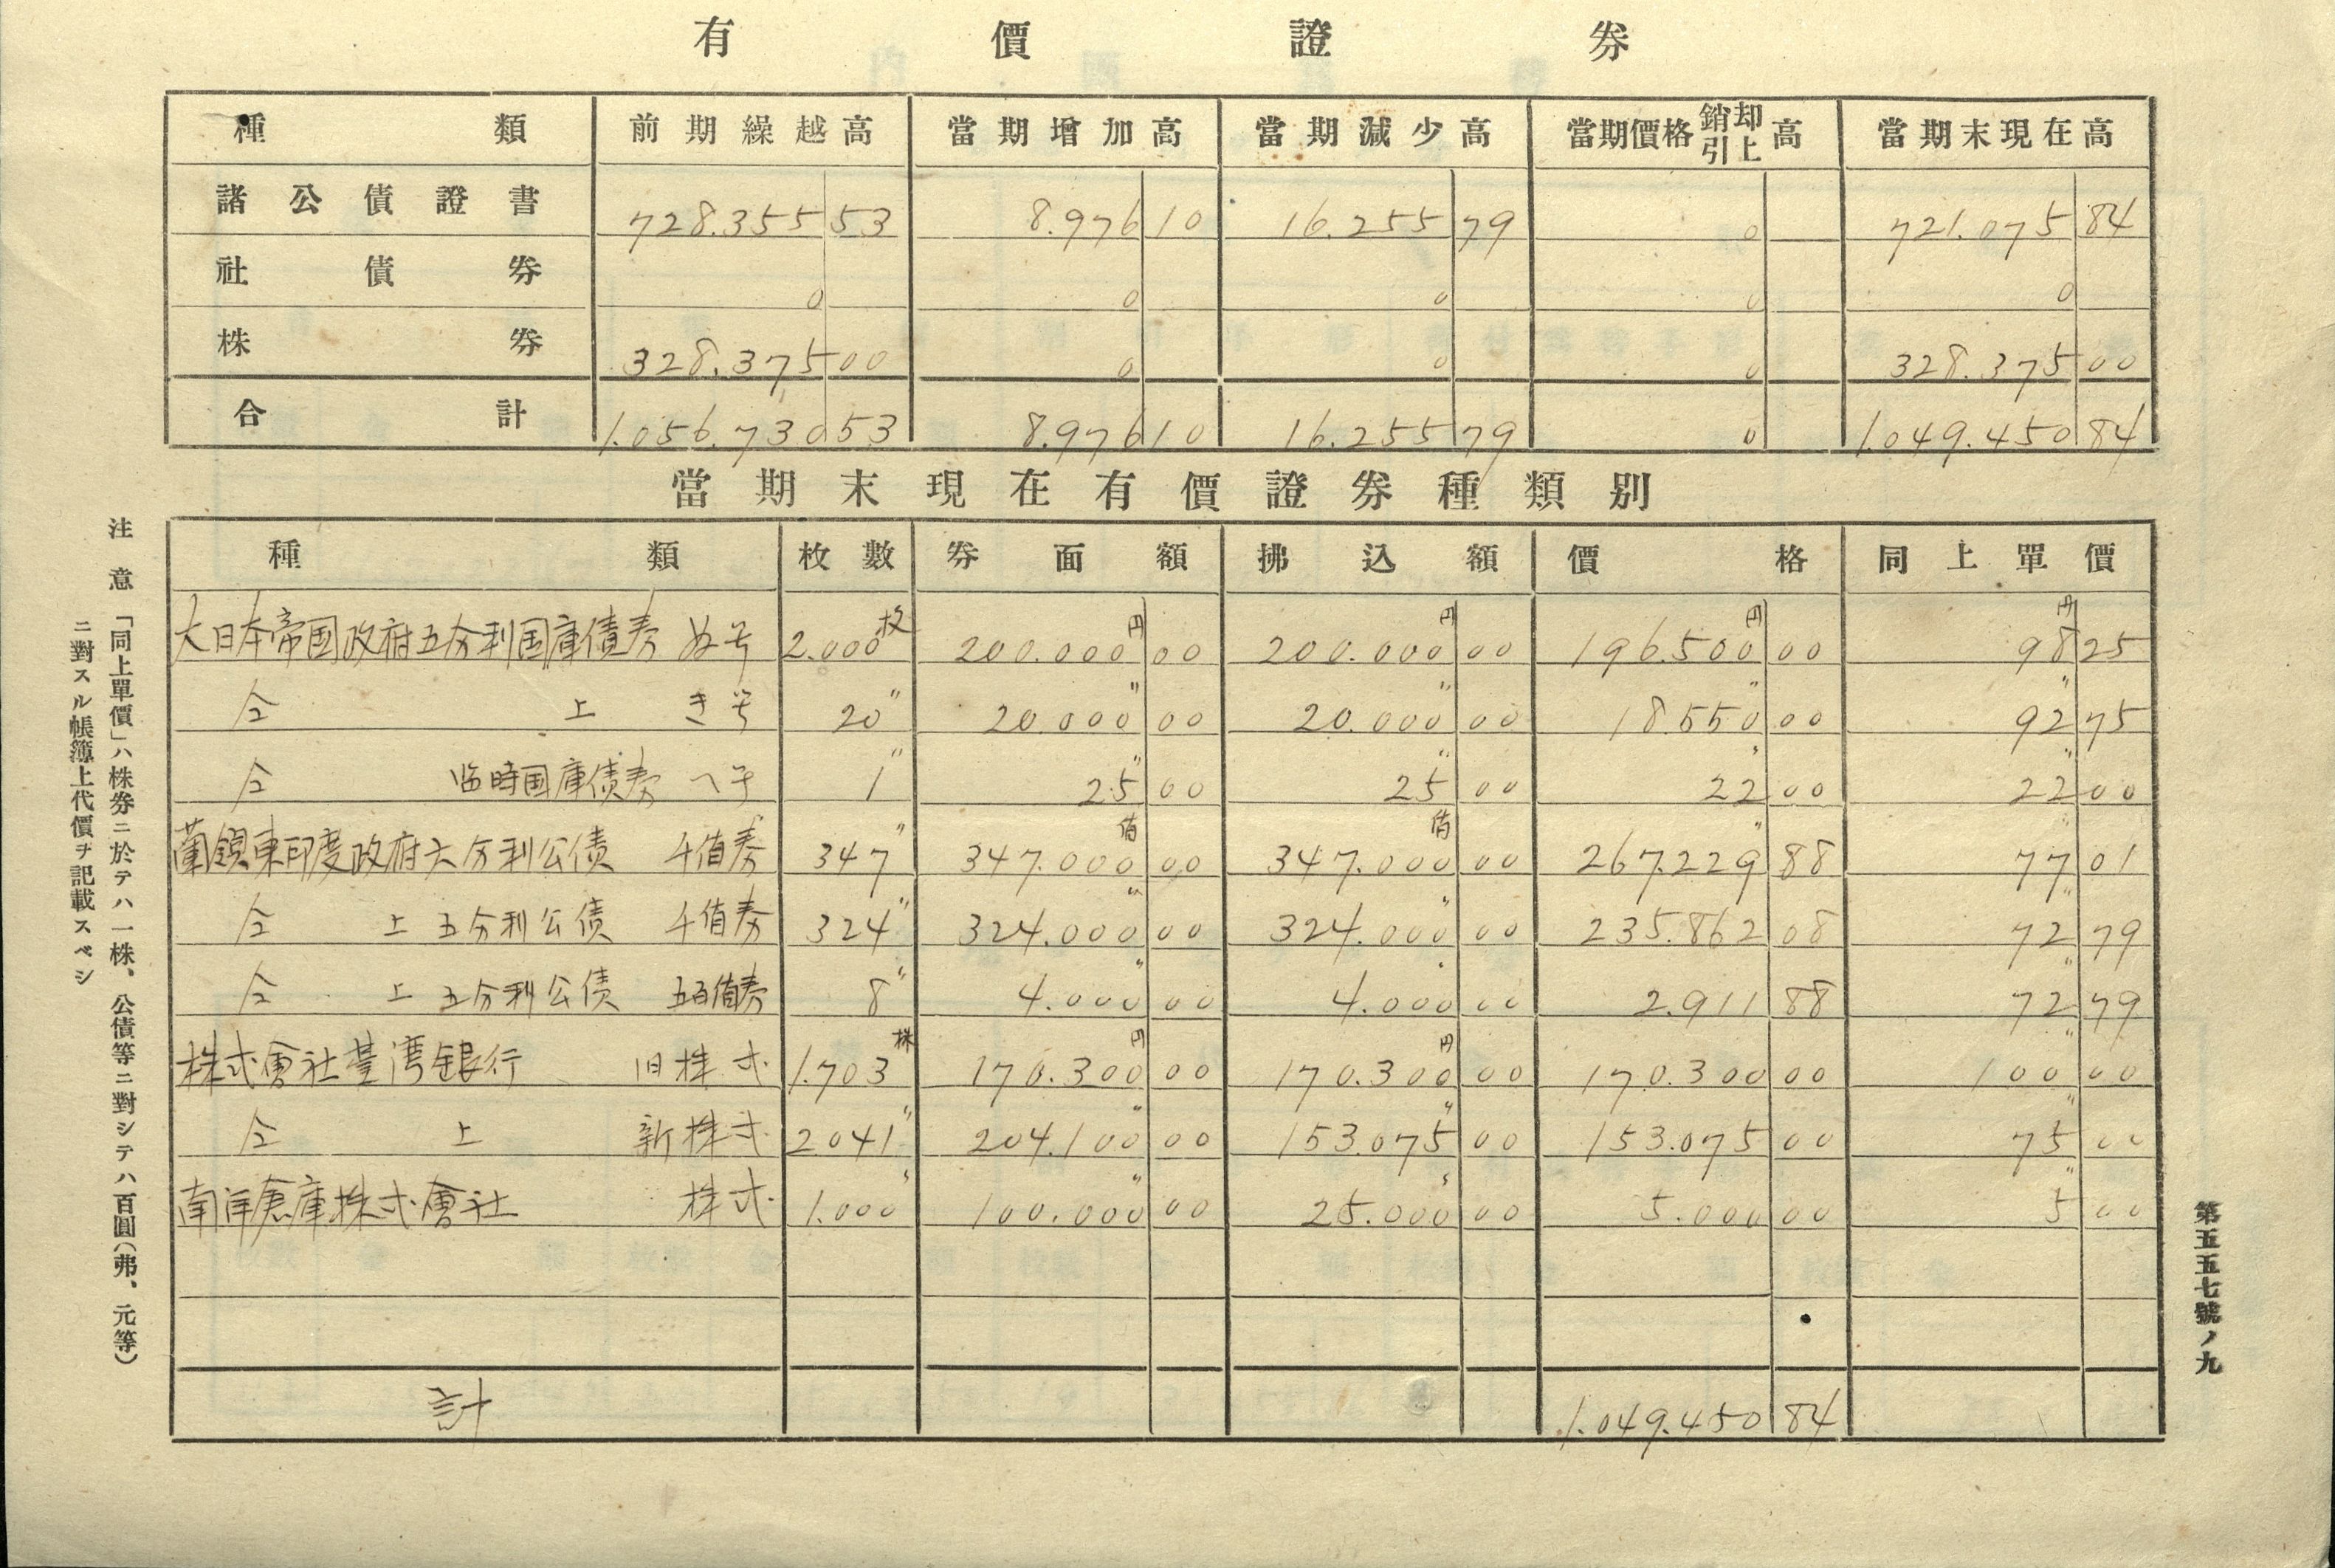 有價證券
種類 前期繰越高 當期增加高 當期減少高 當期價格銷却引上高 當期末現在高
諸公債證書 728.355 53 8.976 10 16.255 79 0 721.075 84
社債券 0 0 0 0 0
株券 328.375 00 0 0 0 328.375 00
合計 1.056.730 53 8.976 10 16.255 79 0 1.049.450 84
當期末現在有價證券種類別
種類 枚數 券面額 拂込額 價格 同上單價
大日本帝国政府五分利国庫債券 ぬ号 2.000枚 200.000円 00 200.000円 00 196.500円 00 98円 25
仝上 き号 20〃 20.000〃 00 20.000〃 00 18.550〃 00 92〃 75
仝 臨時国庫債券 へ号 1〃 25〃 00 25〃 00 22〃 00 22〃 00
蘭領東印度政府六分利公債 千盾券 347〃 347.000盾 00 347.000盾 00 267.229〃 88 77〃 01
仝上 五分利公債 千盾券 324〃 324.000〃 00 324.000〃 00 235.862 08 72〃 79
仝上 五分利公債 五百盾券 8〃 4.000〃 00 4.000〃 00 2.911 88 72〃 79
株式會社臺湾銀行 旧株式 1.703株 170.300円 00 170.300円 00 170.300 00 100〃 00
仝上 新株式 2041〃 204.100〃 00 153.075〃 00 153.075 00 75〃 00
南洋倉庫株式會社 株式 1.000〃 100.000〃 00 25.000〃 00 5.000 00 5〃 00
計 1.049.450 84
注意 「同上單價」ハ株券ニ於テハ一株、公債等ニ對シテハ百圓(弗、元等)
ニ對スル帳簿上代價ヲ記載スベシ
第五五七號ノ九